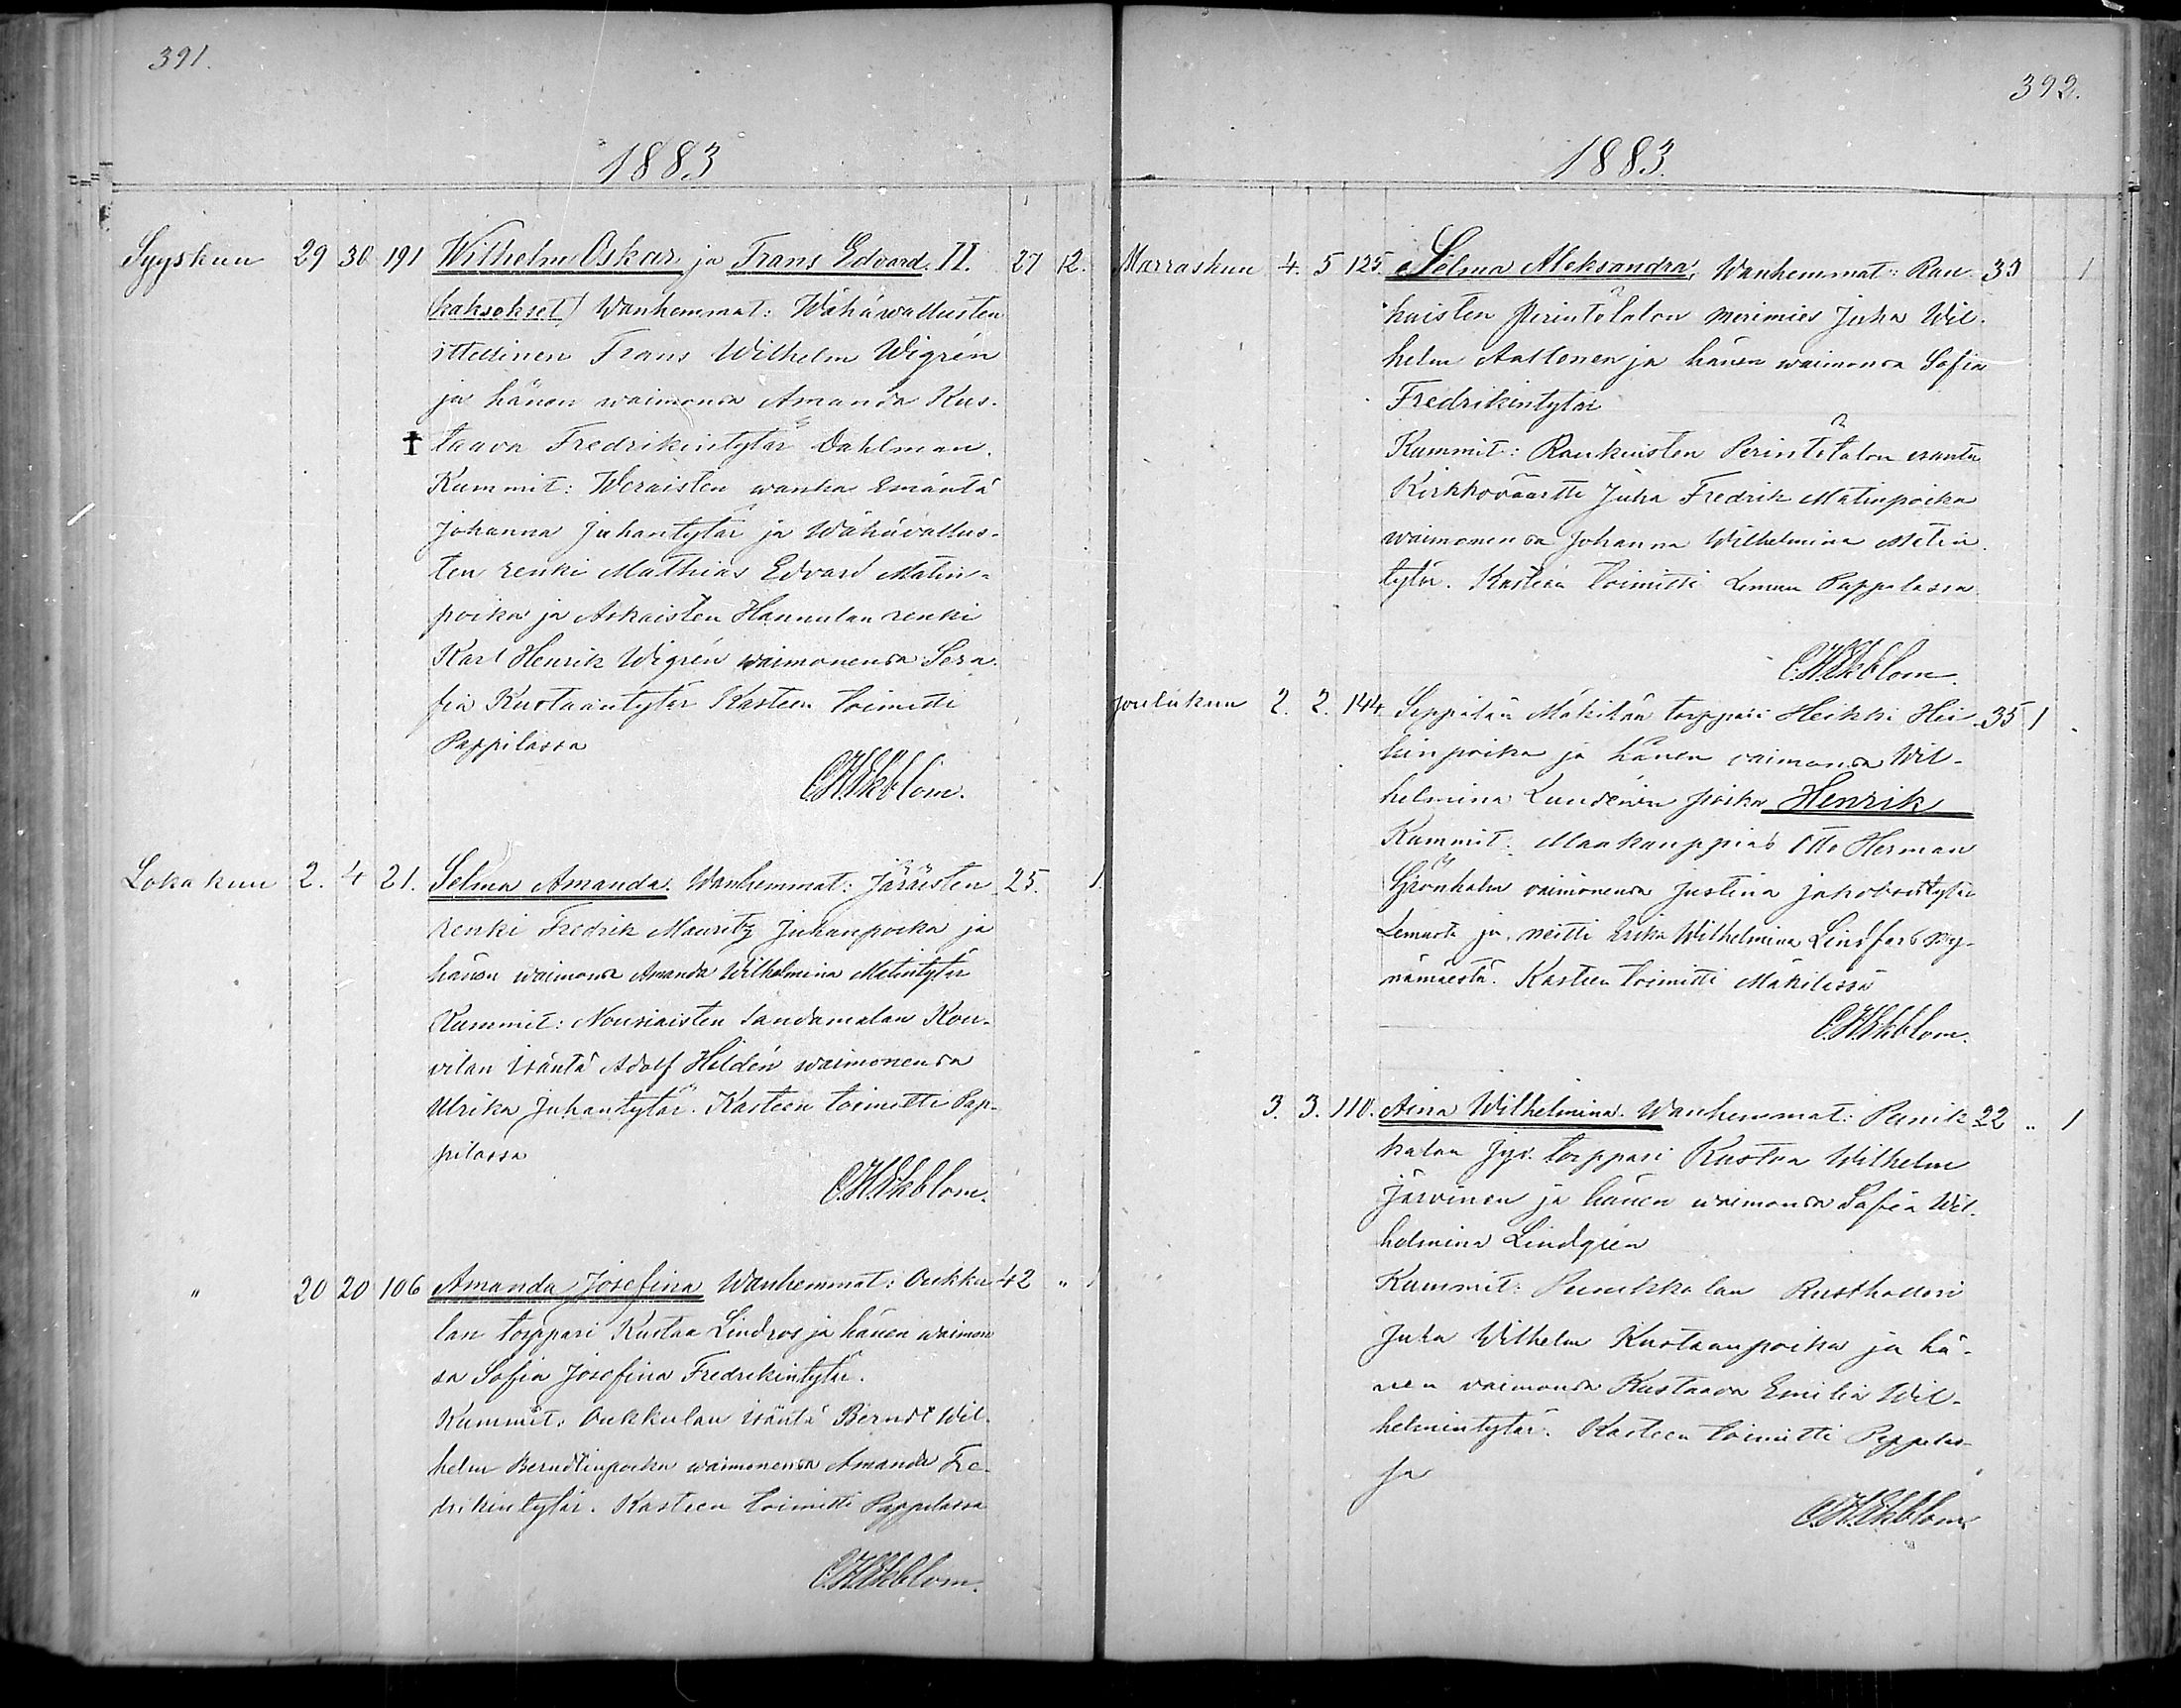 391.
1883
Syyskuu 29 30 191 Wilhelm Oskar ja Frans Edvard II. 27 12.
(kaksokset) Wanhemmat: Wähäwallusten
ittellinen Frans Wilhelm Wigrén
ja hänen waimonsa Amanda Kus-
† taava Fredrikintytär Dahlman.
Kummit: Weraisten wanha Emäntä
Johanna Juhantytär ja Wähävallus-
ten renki Mathias Edvard Matin-
poika ja Askaisten Hannulan renki
Karl Henrik Wigrén waimonensa Sera-
fia Kustaantytär Kasteen toimitti
Pappilassa
C.H.Ekblom.
Lokakuu 2. 4 21. Selma Amanda. Wanhemmat: Järäisten 25. 1.
renki Fredrik Mauritz Juhanpoika ja
hänen waimonsa Amanda Wilhelmina Matintytär
Kummit: Nousiaisten Sandamalan Kou-
vilan Isäntä Adolf Heldén waimonensa
Ulrika Juhantytär. Kasteen toimitti Pap-
pilassa
C.H.Ekblom.
" 20 20 106 Amanda Josefina Wanhemmat: Oukku- 42 " 1
lan torppari Kustaa Lindros ja hänen waimon
sa Sofia Josefina Fredrikintytär.
Kummit: Oukkulan isäntä Berndt Wil-
helm Berndtinpoika waimonensa Amanda Fre-
drikintytär. Kasteen toimitti Pappilassa
C.H.Ekblom.
392.
1883.
Marraskuu 4. 5 125. Selma Aleksandra, Wanhemmat: Rau- 33 1
kaisten Perintötalon merimies Juha Wil-
helm Aaltonen ja hänen waimonsa Sofia
Fredrikintytär
Kummit: Raukaisten Perintötalon isäntä
Kirkkoväärtti Juha Fredrik Matinpoika
waimonensa Johanna Wilhelmina Matin-
tytär. Kasteen toimitti Lemun Pappilassa
C.H.Ekblom.
Joulukuu 2. 2. 144. Seppälän Mäkilän torppari Heikki Hei- 35 1
kinpoika ja hänen vaimonsa Wil-
helmina Lundénin poika Henrik
Kummit: Maakauppias Otto Herman
Grönholm vaimonensa Justina Jakobintytär
Lemusta ja neitti Erika Wilhelmina Lindfors My-
nämäestä. Kasteen toimitti Mäkilässä
C.H.Ekblom.
3. 3. 110. Aina Wilhelmina. Wanhemmat: Punik- 22 " 1
kalan Jyv. torppari Kustaa Wilhelm
Järvinen ja hänen waimonsa Sofia Wil-
helmina Lindgrén
Kummit: Punikkalan Rusthollari
Juha Wilhelm Kustaanpoika ja hä-
nen vaimonsa Kustaava Emilia Wil-
helmintytär. Kasteen toimitti Pappilas-
sa
C.H.Ekblom.